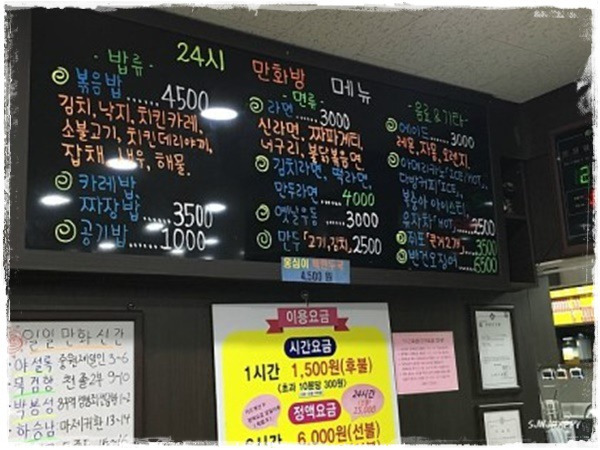 24시 만화방 메뉴
- 밥류 -
볶음밥 ..... 4500
김치, 낙지, 치킨카레,
소불고기, 치킨데리야끼,
잡채, 새우, 해물.
카레밥
짜장밥 ..... 3500
공기밥 ..... 1000
- 면류 -
라면 ..... 3000
신라면, 짜파게티,
너구리, 불닭볶음면
김치라면, 떡라면,
만두라면 ..... 4000
옛날우동 ..... 3000
만두「고기,김치」2500
- 음료 & 기타 -
에이드 ..... 3000
레몬, 자몽, 오렌지.
아메리카노"ICE/HOT",
다방커피"ICE",
복숭아 아이스티,
유자차"HOT" 2500
3500
반건오징어
옹심이
4,500 원
일일 만화 신간
야설록
3-6
묵검향 천졸2부 9-10
박봉성
1-2
하승남 마제귀환 13-14
이용요금
시간요금
1시간 1,500원(후불)
(초과 10분당 300원)
정액요금
24시간
25,000
6,000원(선불)